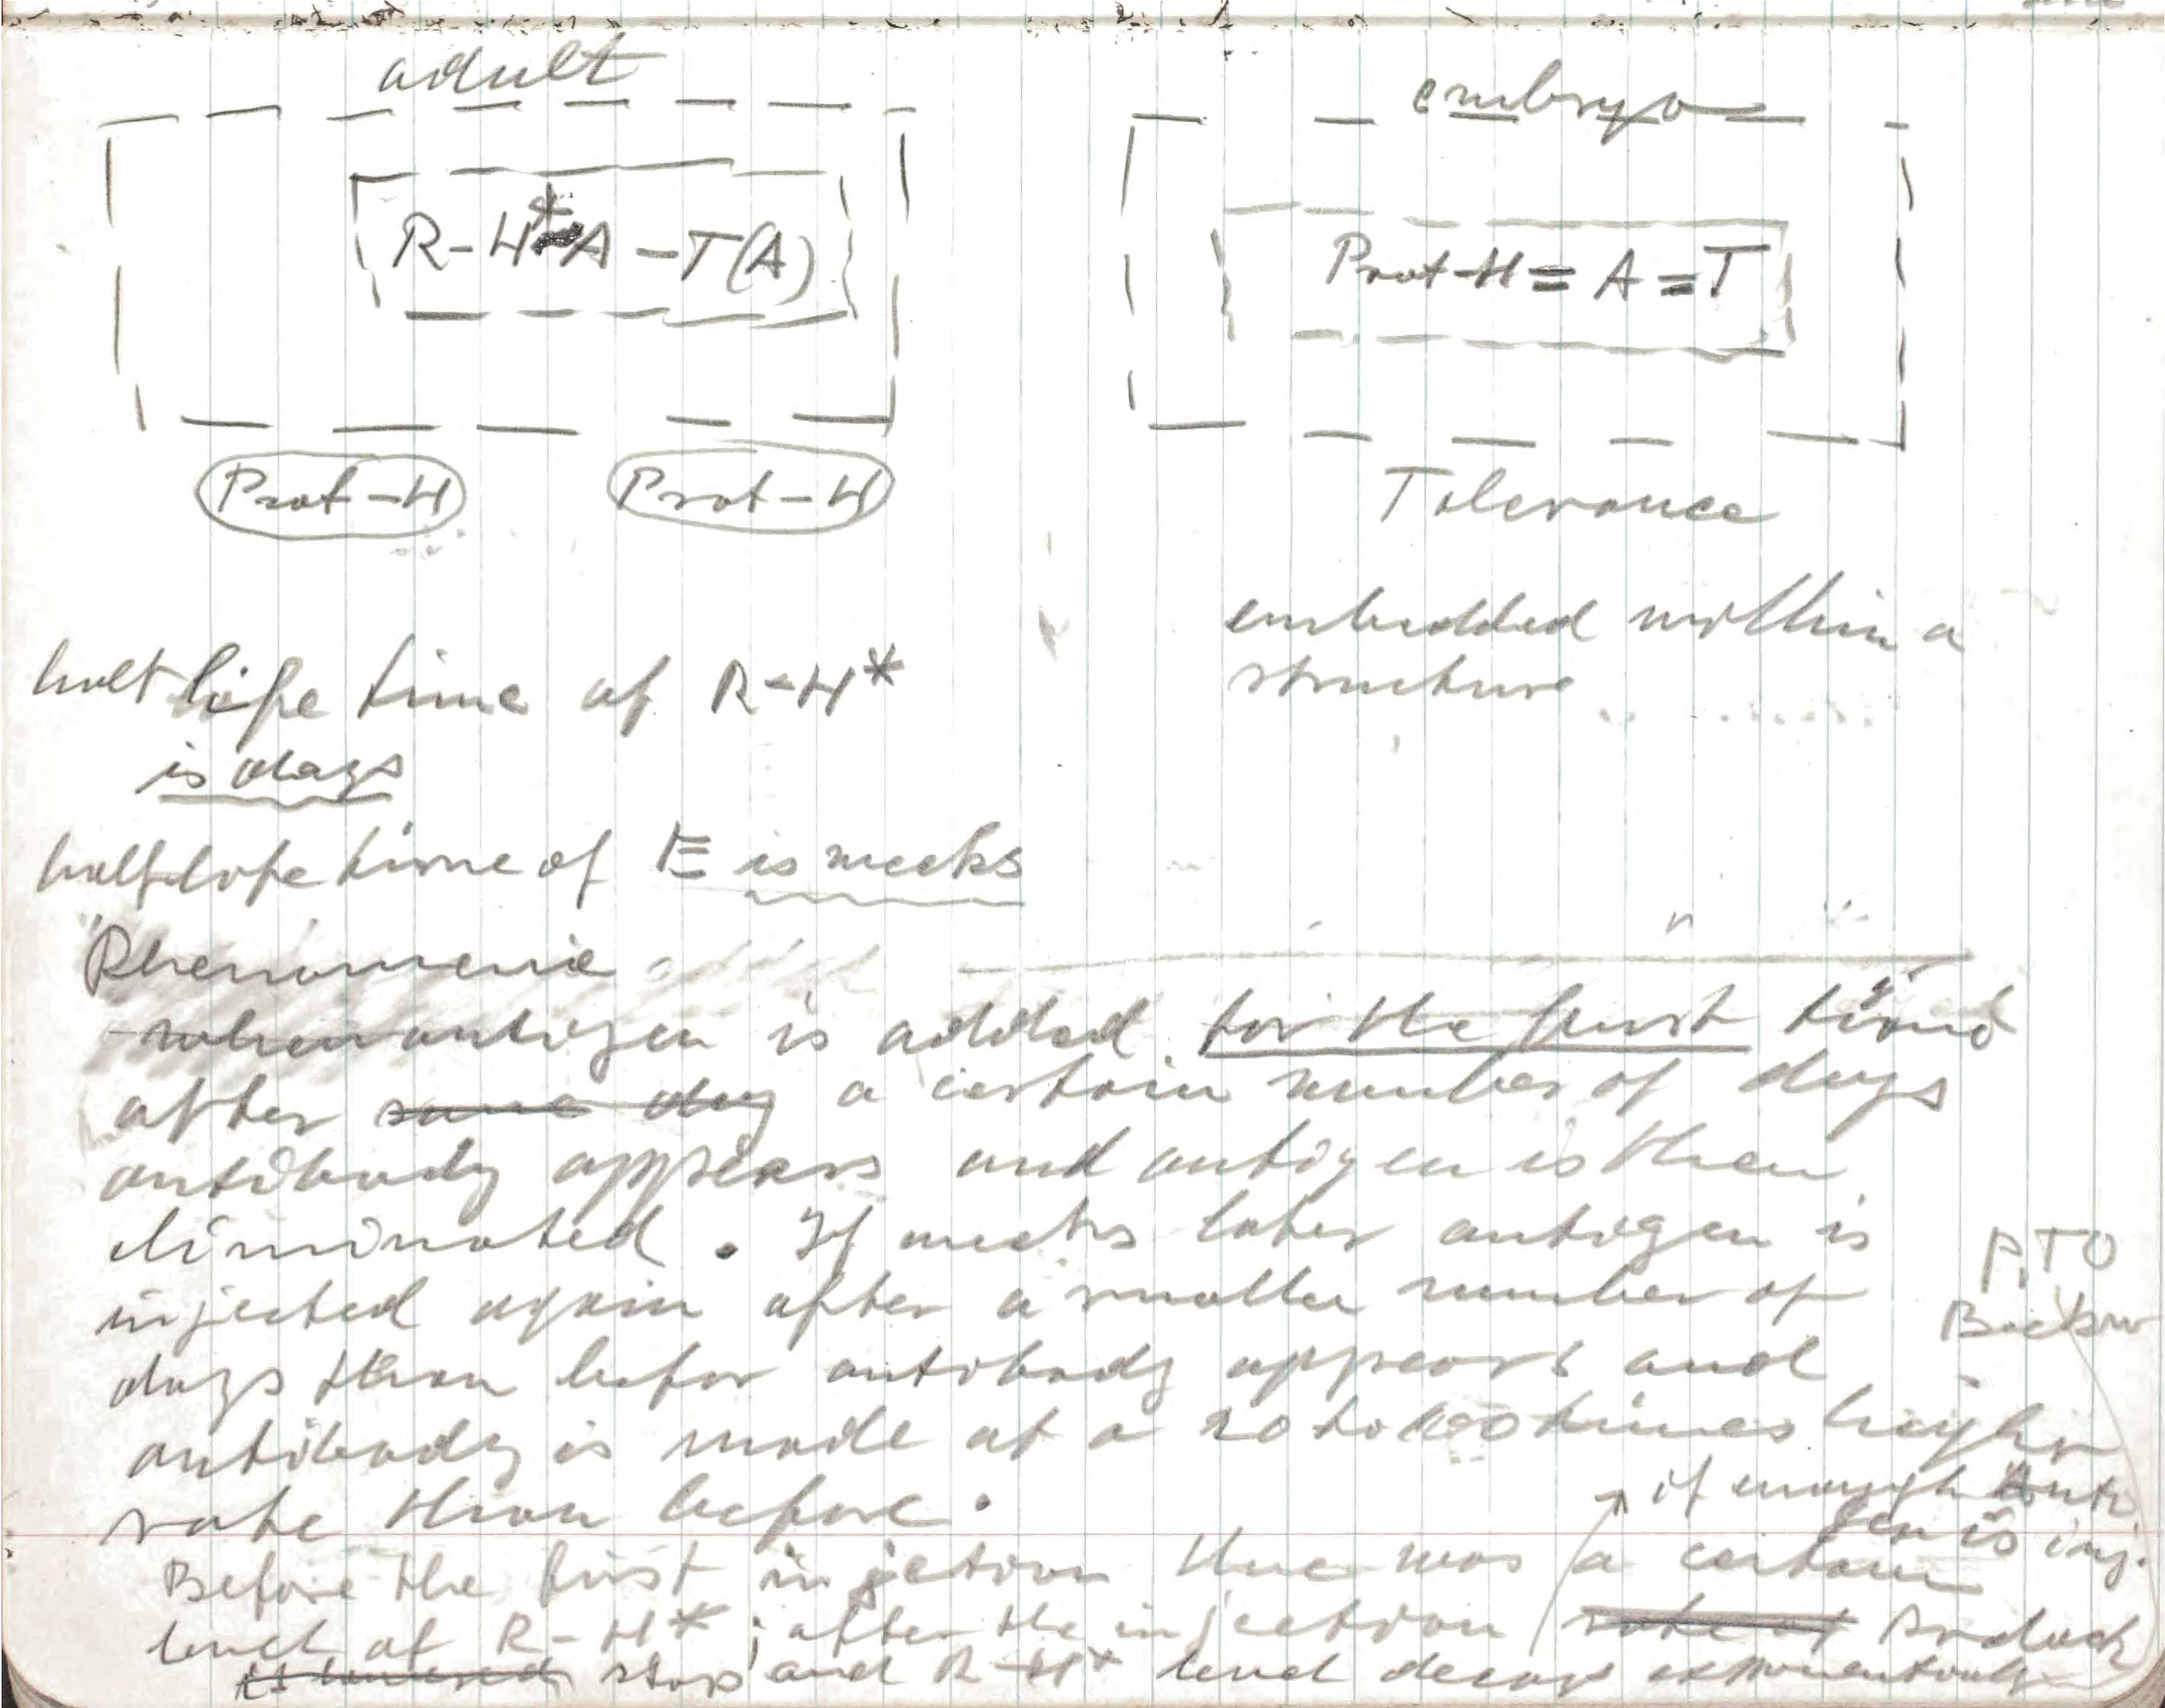 adult
R-H*-A-T(A)
Prot-H Prot-H
embryo
Prot-H=A=T
Tolerance
embedded within a
structure
half life time of R-H*
is days
half life time of E is weeks
Phenomenie
when antigen is added for the first time
after some day a certain number of days
antibody appears and antigen is then
eliminated. If weeks later antigen is
injected again after a smaller number of
days than befor antibody appears and
antibody is made at a 20 to 100 times higher
rate than before.
P.TO
if enough Anti
gen is inj.
Before the first injection there was a certain
level of R-H*; after the injection rate of
is lowered stops and R-H* level decays exponentially